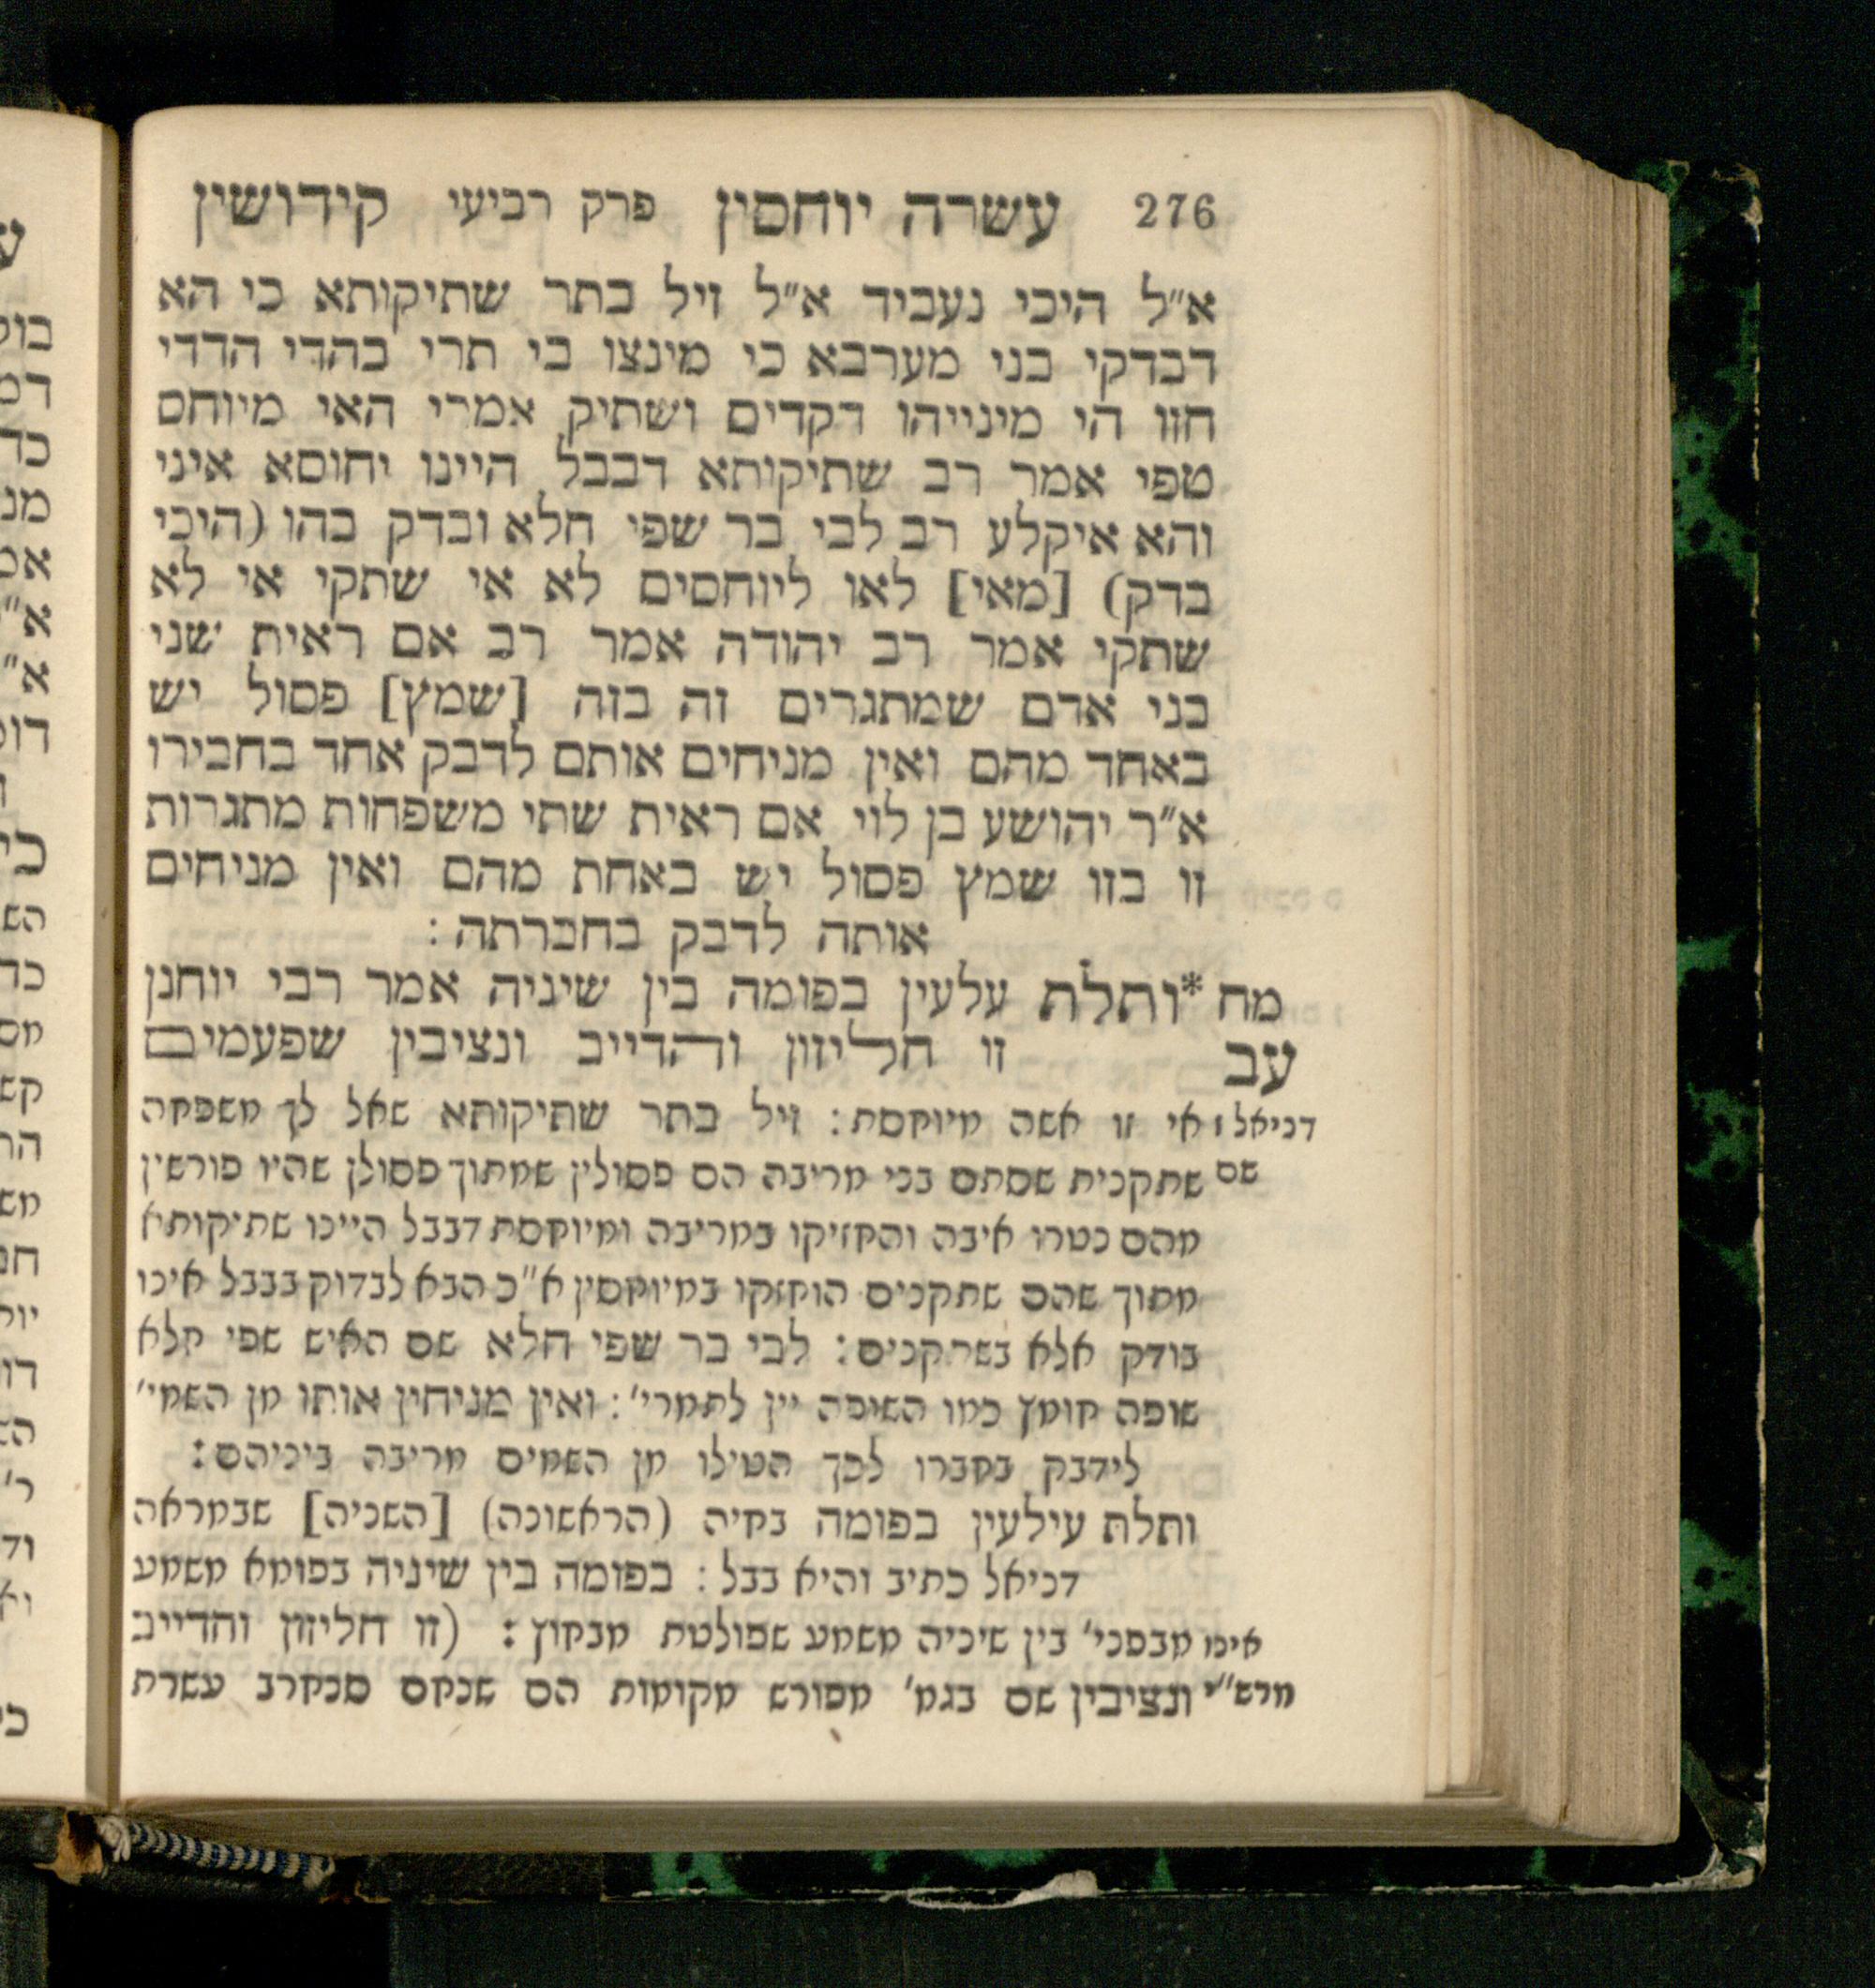 276 עשרה יוחסין פרק רביעי קידושין
א״ל היכי נעביד א״ל זיל בתר שתיקותא כי הא
דבדקי בני מערבא כי מינצו בי תרי בהדי הדדי
חזו הי מינייהו דקדים ושתיק אמרי האי מיוחס
טפי אמר רב שתיקותא דבבל היינו יחוסא איני
והא איקלע רב לבי בר שפי חלא ובדק בהו (היכי
בדק) [מאי] לאו ליוחסים לא אי שתקי אי לא
שתקי אמר רב יהודה אמר רב אם ראית שני
בני אדם שמתגרים זה בזה [שמץ] פסול יש
באחד מהם ואין מניחים אותם לדבק אחד בחבירו
א״ר יהושע בן לוי אם ראית שתי משפחות מתגרות
זו בזו שמץ פסול יש באחת מהם ואין מניחים
אותה לדבק בחברתה :
מח *ותלת עלעין בפומה בין שיניה אמר רבי יוחנן
עב זו חליזון והדייב ונציבין שפעמים
דניאל ז אי זו אשה מיוחסת : זיל בתר שתיקותא שאל לך משפחה
שם שתקנית שסתם בני מריבה הם פסולין שמתוך פסולן שהיו פורשין
מהם נטרו איבה והחזיקו במריבה ומיוחסת דבבל היינו שתיקותא
מתוך שהם שתקנים הוחזקו במיוחסין א״כ הבא לבדוק בבבל אינו
בודק אלא בשתקנים : לבי בר שפי חלא שם האיש שפי חלא
שופה חומץ כמו השופה יין לתמרי׳ : ואין מניחין אותו מן השמי׳
לידבק בחברו לכך הטילו מן השמים מריבה ביניהם :
ותלת עילעין בפומה בחיה (הראשונה) [השניה] שבמראה
דניאל כתיב והיא בבל : בפומה בין שיניה בפומא משמע
אינו מבפני׳ בין שיניה משמע שפולטת מבחוץ : (זו חליזון והדייב
מרש״י ונציבין שם בגמ׳ מפורש מקומות הם שנחם סנחרב עשרת